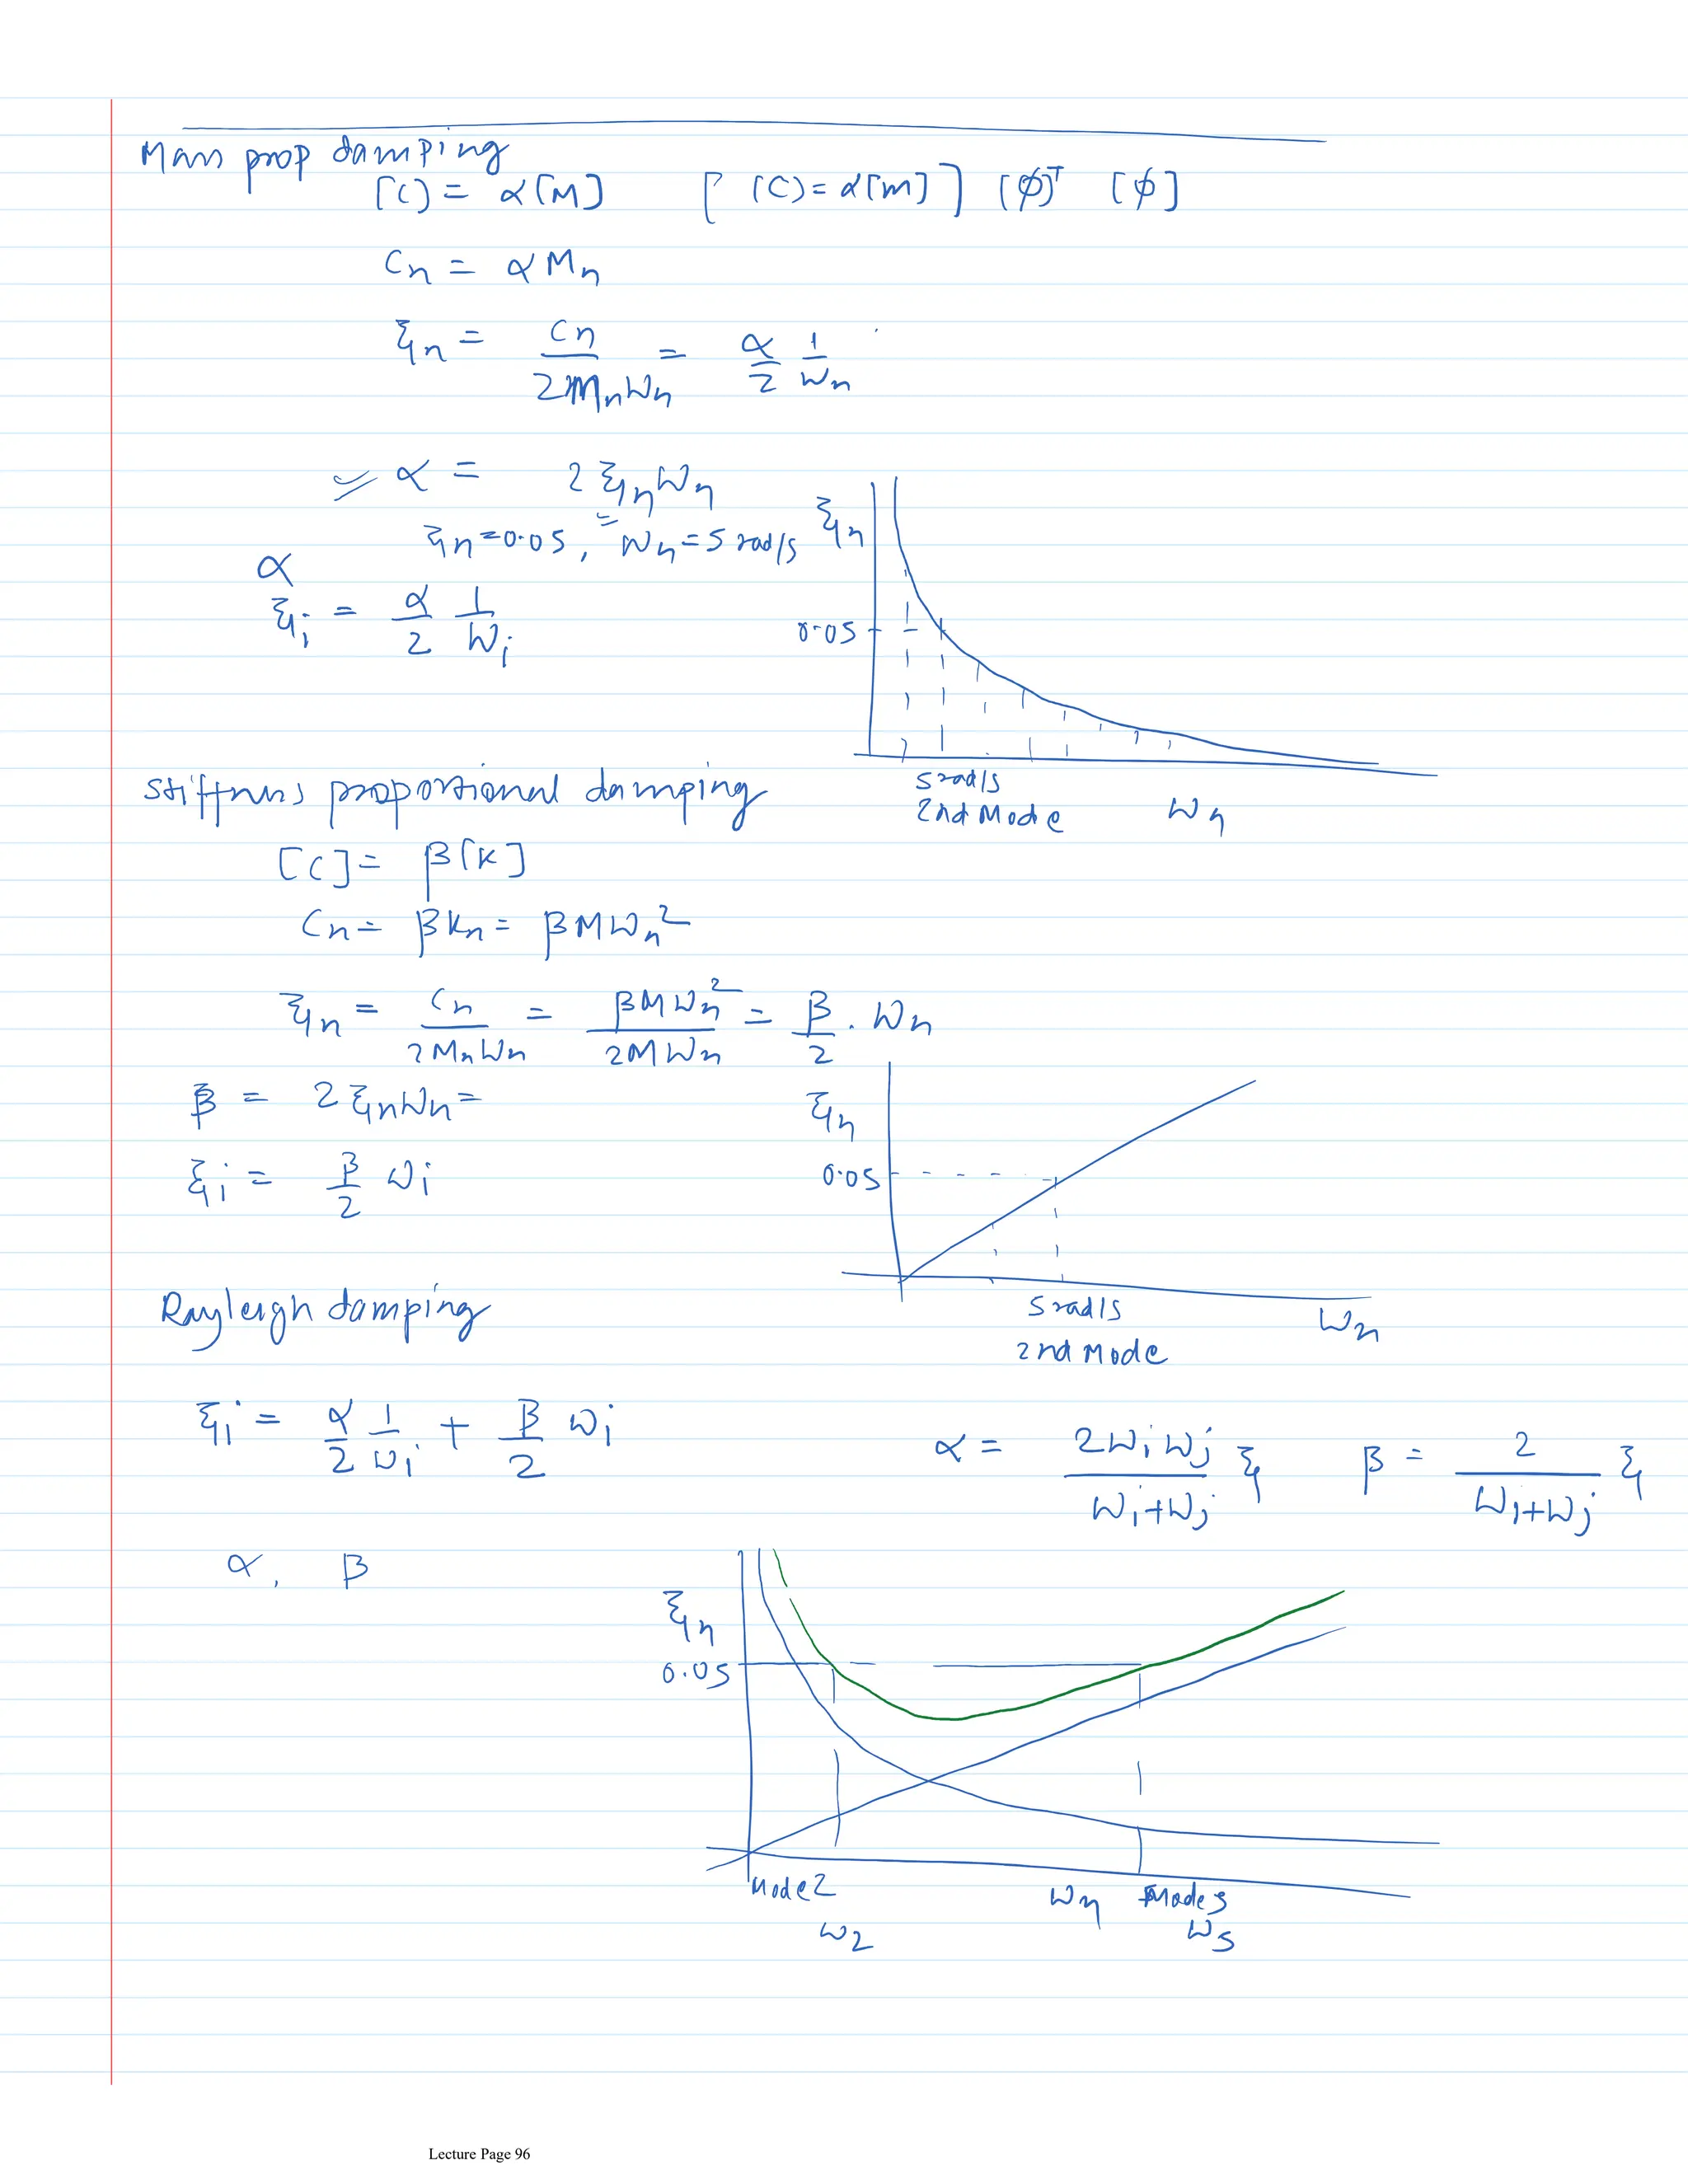 Mass prop damping
[C] = α[M]   [ [C] = α[m] ] [ϕ]ᵀ [ϕ]
Cn = α Mn
ξn = Cn / 2MnWn = α/2 1/Wn
α = 2 ξn Wn
ξn = 0.05, Wn = 5 rad/s
α
ξi = α/2 1/Wi
ξn
0.05
5 rad/s
2nd Mode
Wn
Stiffness proportional damping
[C] = β[K]
Cn = βKn = βMWn²
ξn = Cn / 2MnWn = βMWn² / 2MWn = β/2 . Wn
β = 2 ξnWn =
ξi = β/2 ωi
ξn
0.05
5 rad/s
2nd Mode
Wn
Rayleigh damping
ξi = α/2 1/ωi + β/2 ωi   α = 2WiWj / Wi+Wj ξ   β = 2 / Wi+Wj ξ
α, β
ξn
0.05
Mode 2
ω2
Wn
Mode 5
W5
Lecture Page 96